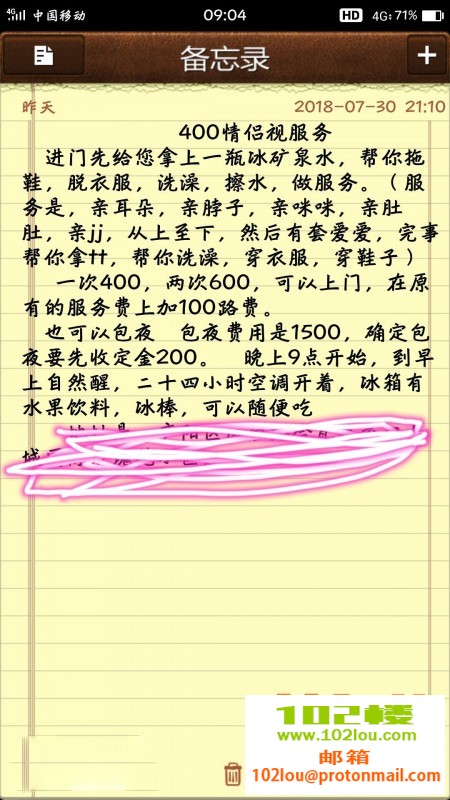 4G 中国移动 09:04 HD 4G 71%
备忘录
昨天 2018-07-30 21:10
400情侣视服务
进门先给您拿上一瓶冰矿泉水，帮你拖
鞋，脱衣服，洗澡，擦水，做服务。（服
务是，亲耳朵，亲脖子，亲咪咪，亲肚
肚，亲jj，从上至下，然后有套爱爱，完事
帮你拿tt，帮你洗澡，穿衣服，穿鞋子）
一次400，两次600，可以上门，在原
有的服务费上加100路费。
也可以包夜 包夜费用是1500，确定包
夜要先收定金200。 晚上9点开始，到早
上自然醒，二十四小时空调开着，冰箱有
水果饮料，冰棒，可以随便吃
102楼
www.102lou.com
邮箱
102lou@protonmail.com